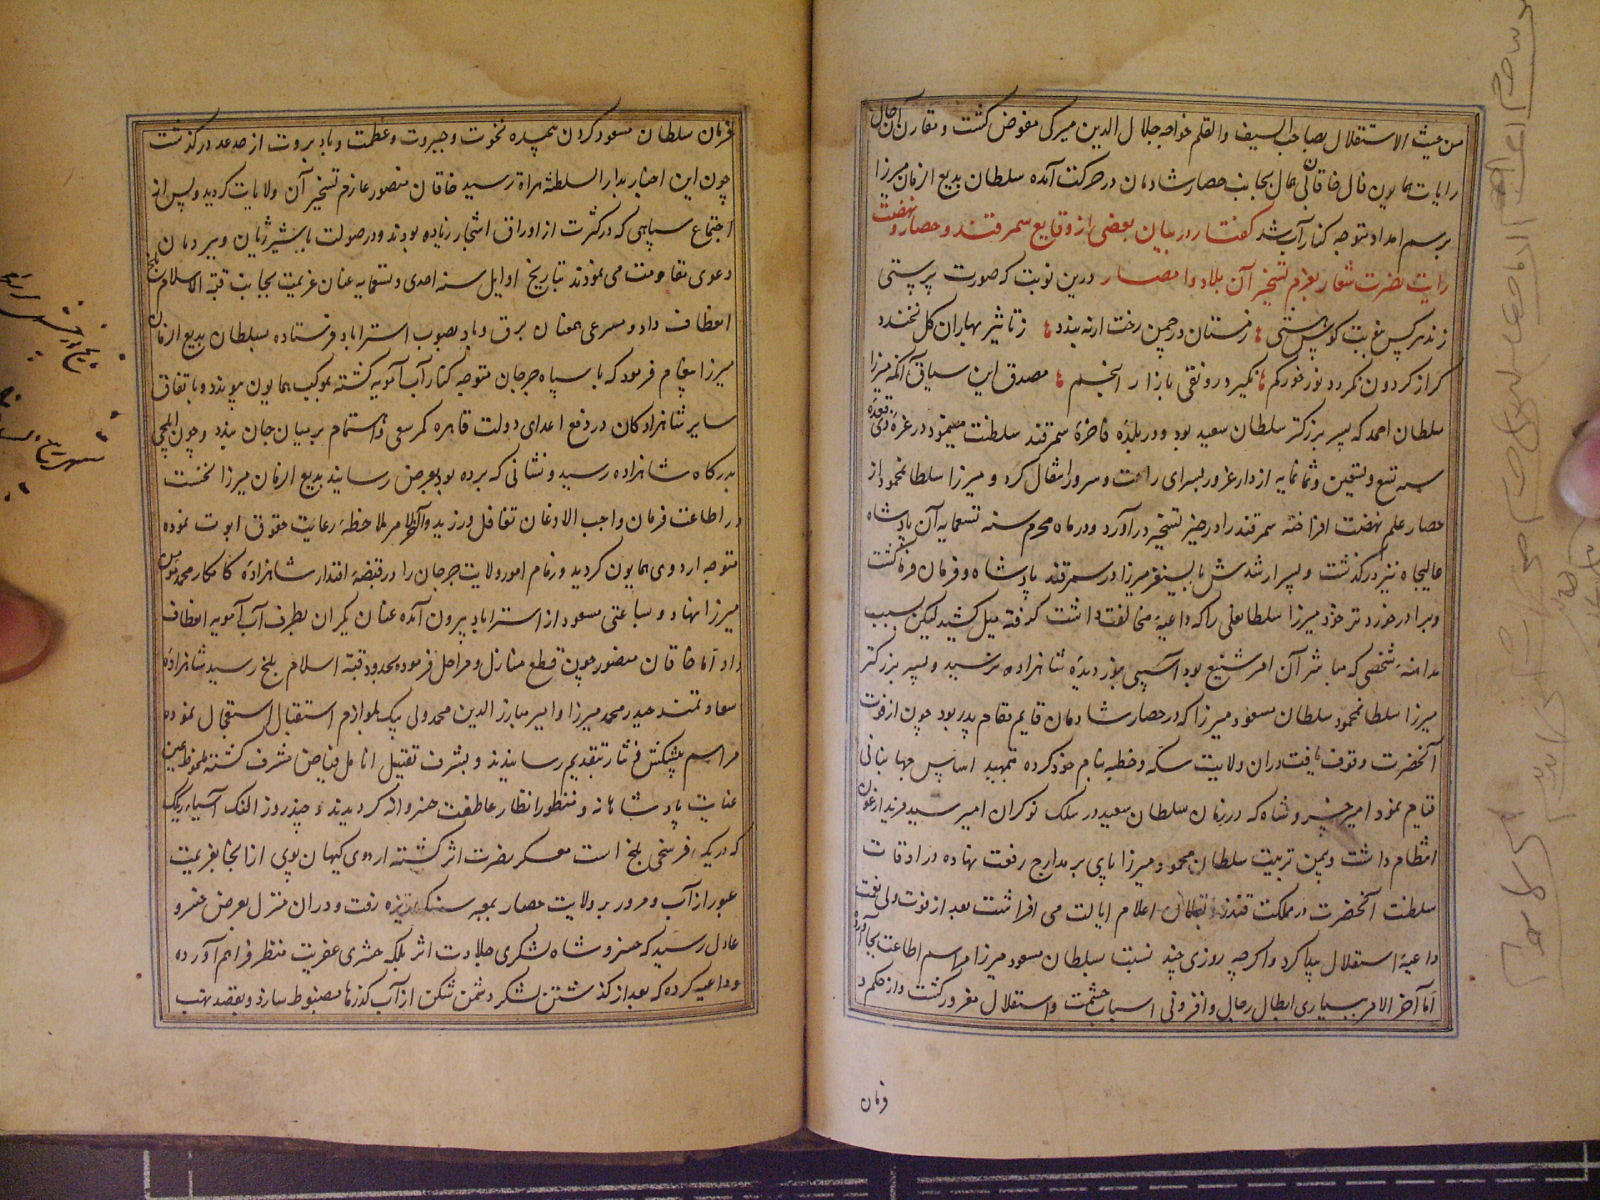 من حیث الاستقلال بصاحب السیف والقلم خواجه جلال الدین میرکی مفوض کشت و مقارن آن حال
رایات همایون فال خاقانی بجانب حصار شادمان در حرکت آمده سلطان بدیع الزمان میرزا
برسم امداد متوجه کنار آب شد کفتار در بیان بعضی از وقایع سمرقند و حصار و نهضت
رایت نصرت شعار بعزم تسخیر آن بلاد و امصار درین نوبت که صورت پرستی
زمستان در چمن رخت ار نه بندد ز تاثیر بهاران کل نخندد
کر از کردون نکردد نور خور کم نکیرد رونقی بازار انجم مصدق این سیاق آنکه میرزا
سلطان احمد که پسر بزرکتر سلطان سعید بود و در بلدهٔ فاخرهٔ سمرقند سلطنت مینمود در غرهٔ ذی قعده
سنه تسع و تسعین و ثمانمایه از دار غرور بسرای راحت و سرور انتقال کرد و میرزا سلطانمحمود از
حصار علم نهضت افراخته سمرقند را در حیز تسخیر در آورد و در ماه محرم سنه تسعمایه آن پادشاه
عالیجاه نیز در کذشت و پسر ارشدش بایسنغر میرزا در سمرقند پادشاه و فرمان فرما کشت
و برادر خورد تر خود میرزا سلطانعلی را که داعیهٔ مخالفت داشت کرفته میل کشید لیکن بسبب
مداهنهٔ شخصی که مباشر آن امر شنیع بود آسیبی بنور دیدهٔ شاهزاده نرسید و پسر بزرکتر
میرزا سلطانمحمود سلطان مسعود میرزا که در حصار شادمان قایم مقام پدر بود چون از فوت
آنحضرت وقوف یافت در ان ولایت سکه و خطبه بنام خود کرده تمهید اساس جهانبانی
قیام نمود امیر خسرو شاه که در زمان سلطان سعید در سلک نوکران امیر سید مزید ارغون
انتظام داشت و بیمن تربیت سلطان محمود میرزا پای بر مدارج رفعت نهاده در اوقات
سلطنت آنحضرت در مملکت قندز و بقلان اعلام ایالت می افراشت بعد از فوت ولی نعمت
داعیهٔ استقلال پیدا کرد و اکرچه روزی چند نسبت بسلطان مسعود میرزا مراسم اطاعت بجا آورد
اما آخر الامر ببسیاری ابطال رجال و افزونی اسباب حشمت و استقلال مغرور کشت و از حکم و
فرمان
فرمان سلطان مسعود کردن پیچیده نخوت و جبروت و عظمت و باد بروت از حد در کذشت
چون این اخبار بدار السلطنه هراة رسید خاقان منصور عازم تسخیر آن ولایات کردید و پس از
اجتماع سپاهی که در کثرت از اوراق اشجار زیاده بودند و در صولت با شیر ژیان و ببر دمان
دعوی مقاومت می نمودند بتاریخ اوایل سنه احدی و تسعمایه عنان عزیمت بجانب قبة الاسلام بلخ
انعطاف داد و مسرعی همعنان برق و باد بصوب استراباد فرستاده بسلطان بدیع الزمان
میرزا پیغام فرمود که با سپاه جرجان متوجه کنار آب آمویه کشته بموکب همایون پیوندد و باتفاق
سایر شاهزادکان در دفع اعدای دولت قاهره کمر سعی و اهتمام بر میان جان بندد و چون ایلچی
بدرکاه شاهزاده رسید و نشانی که برده بود بعرض رسانید بدیع الزمان میرزا نخست
در اطاعت فرمان واجب الاذعان تغافل ورزید و آخر الامر ملاحظهٔ رعایت حقوق ابوت نموده
متوجه اردوی همایون کردید و زمام امور ولایت جرجان را در قبضهٔ اقتدار شاهزادهٔ کامکار محمد مومن
میرزا نهاد و بساعتی مسعود از استراباد بیرون آمده عنان یکران بطرف آب آمویه انعطاف
داد اما خاقان منصور چون قطع منازل و مراحل فرموده بحدود قبة اسلام بلخ رسید شاهزادهٔ
سعادتمند حیدر محمد میرزا و امیر مبارز الدین محمد ولی بیک بلوازم استقبال استعجال نموده
مراسم پیشکش و نثار بتقدیم رسانیدند و بشرف تقبیل انامل فیاض مشرف کشته ملحوظ عین
عنایت پادشاهانه و منظور انظار عاطفت خسروانه کردیدند و چند روز النک آسیاء ریک
که در یک فرسخی بلخ است معسکر نصرت اثر کشته اردوی کیهان پوی از انجا بعزیمت
عبور از آب و مرور بر ولایت حصار بمعبر رفت و در ان منزل بعرض خسرو
عادل رسید که خسرو شاه لشکری جلادت اثر بلکه حشری عفریت منظر فراهم آورده
و داعیه کرده که بعد از کذشتن لشکر دشمن شکن از آب کذرها مضبوط سازد و بقصد نهب